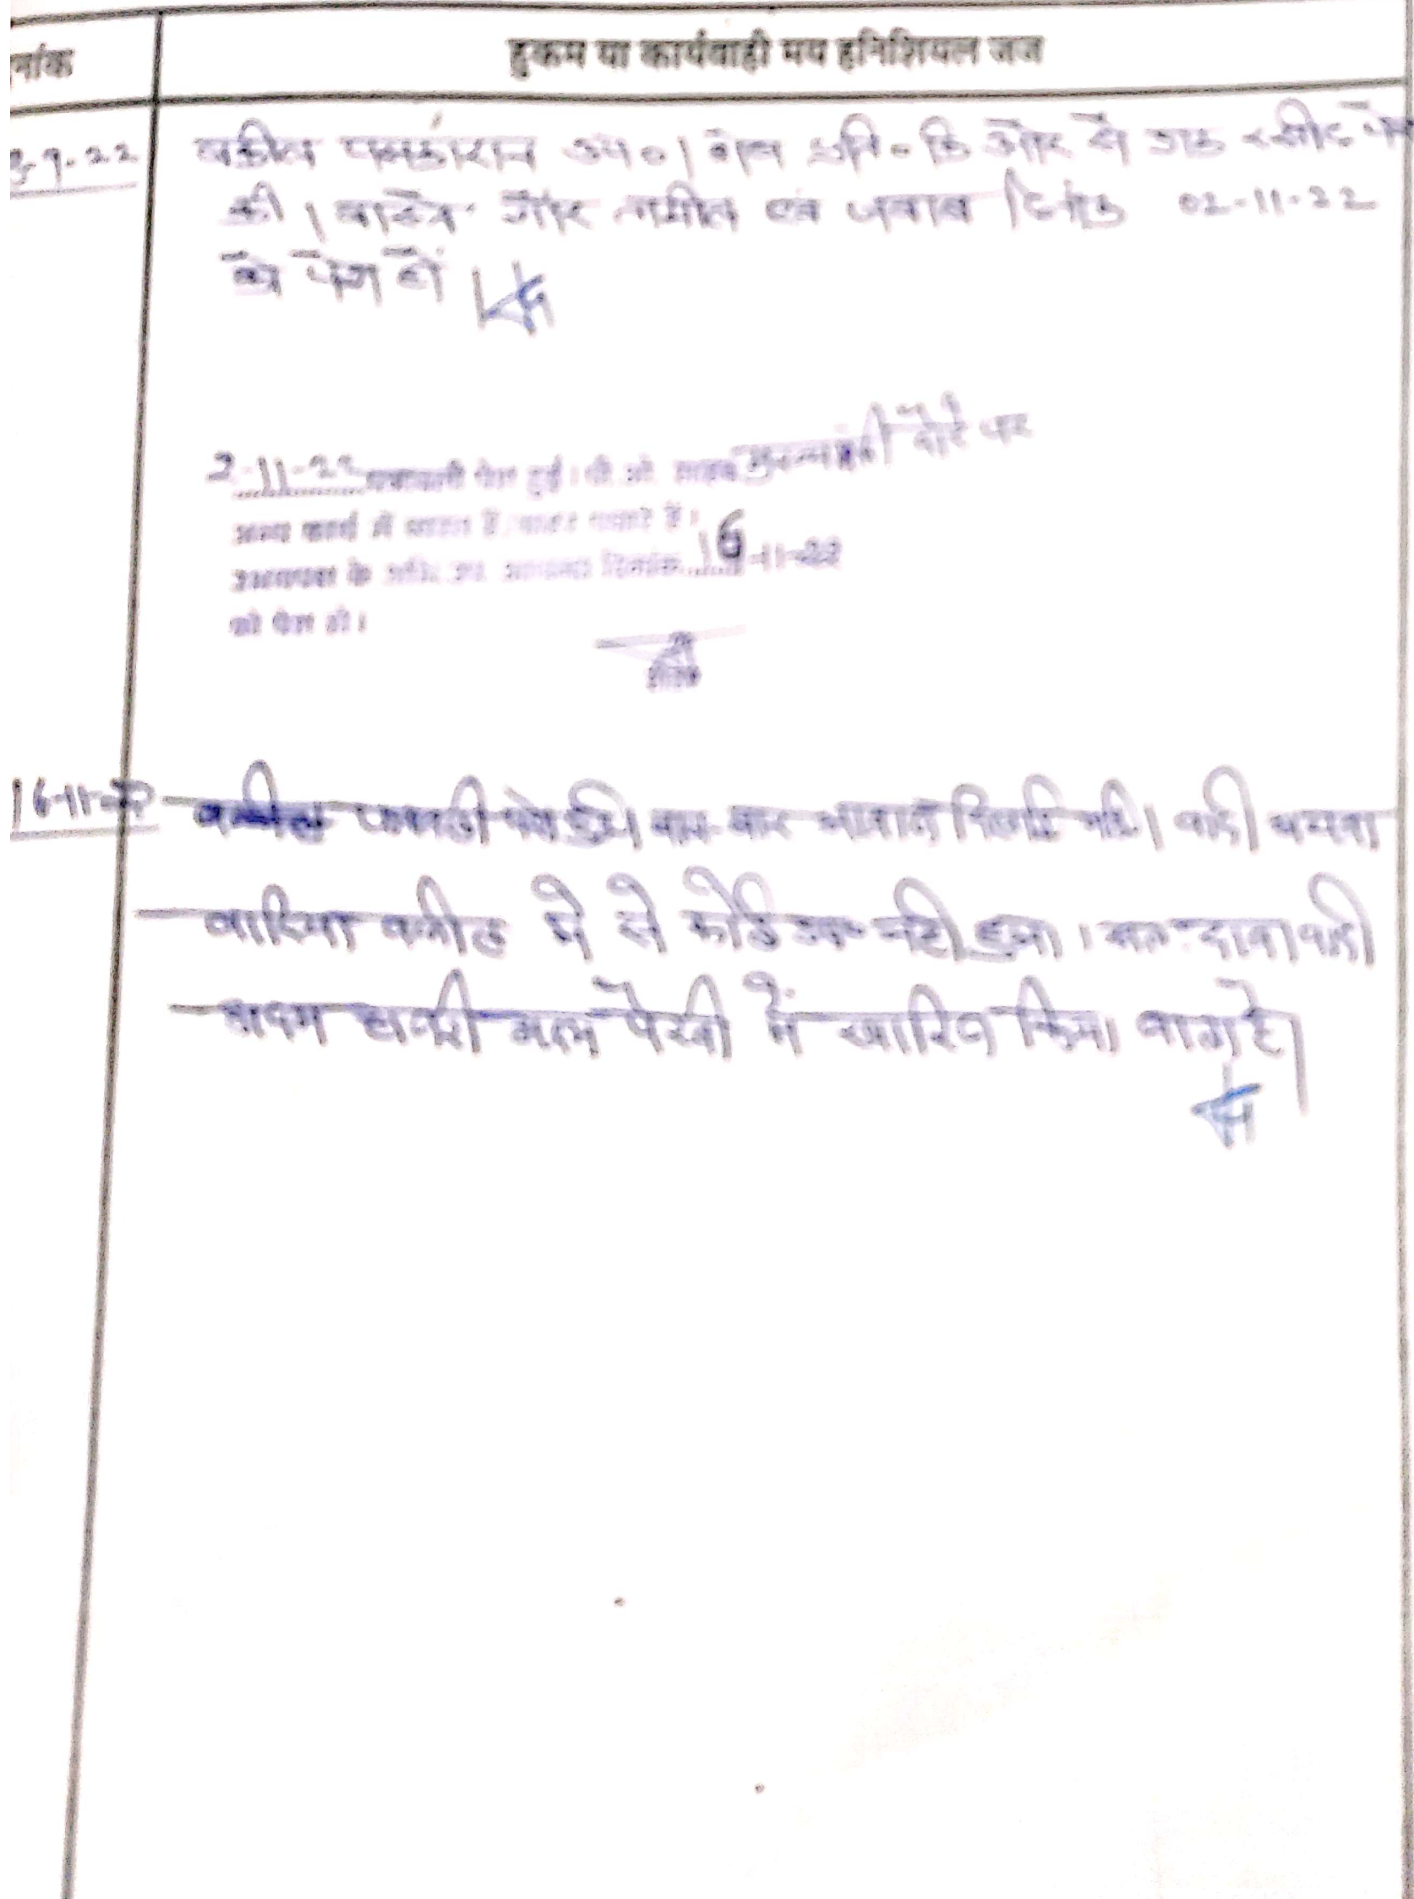 नांक
हुकम या कार्यवाही मय इनिशियल जज
-9-22 वकील पक्षकारान उप०। शेष प्रति० की ओर से डाक रसीद पेश
की। वास्ते और तामील एवं जवाब दिनांक 02-11-22
को पेश हो।
2-11-22 पत्रावली पेश हुई। पी.ओ. साहब दौरे पर
अन्य कार्य में व्यस्त हैं/बाहर पधारे हैं।
के दिनांक 16-11-22
को पेश हो।
रीडर
16-11-22 पेश हुई। बार-बार आवाज दिलाई गई। वादी
वकील में से कोई उप० नहीं हुआ। अतः दावा वादी
अदम हाजरी अदम पैरवी में खारिज किया जाता है।